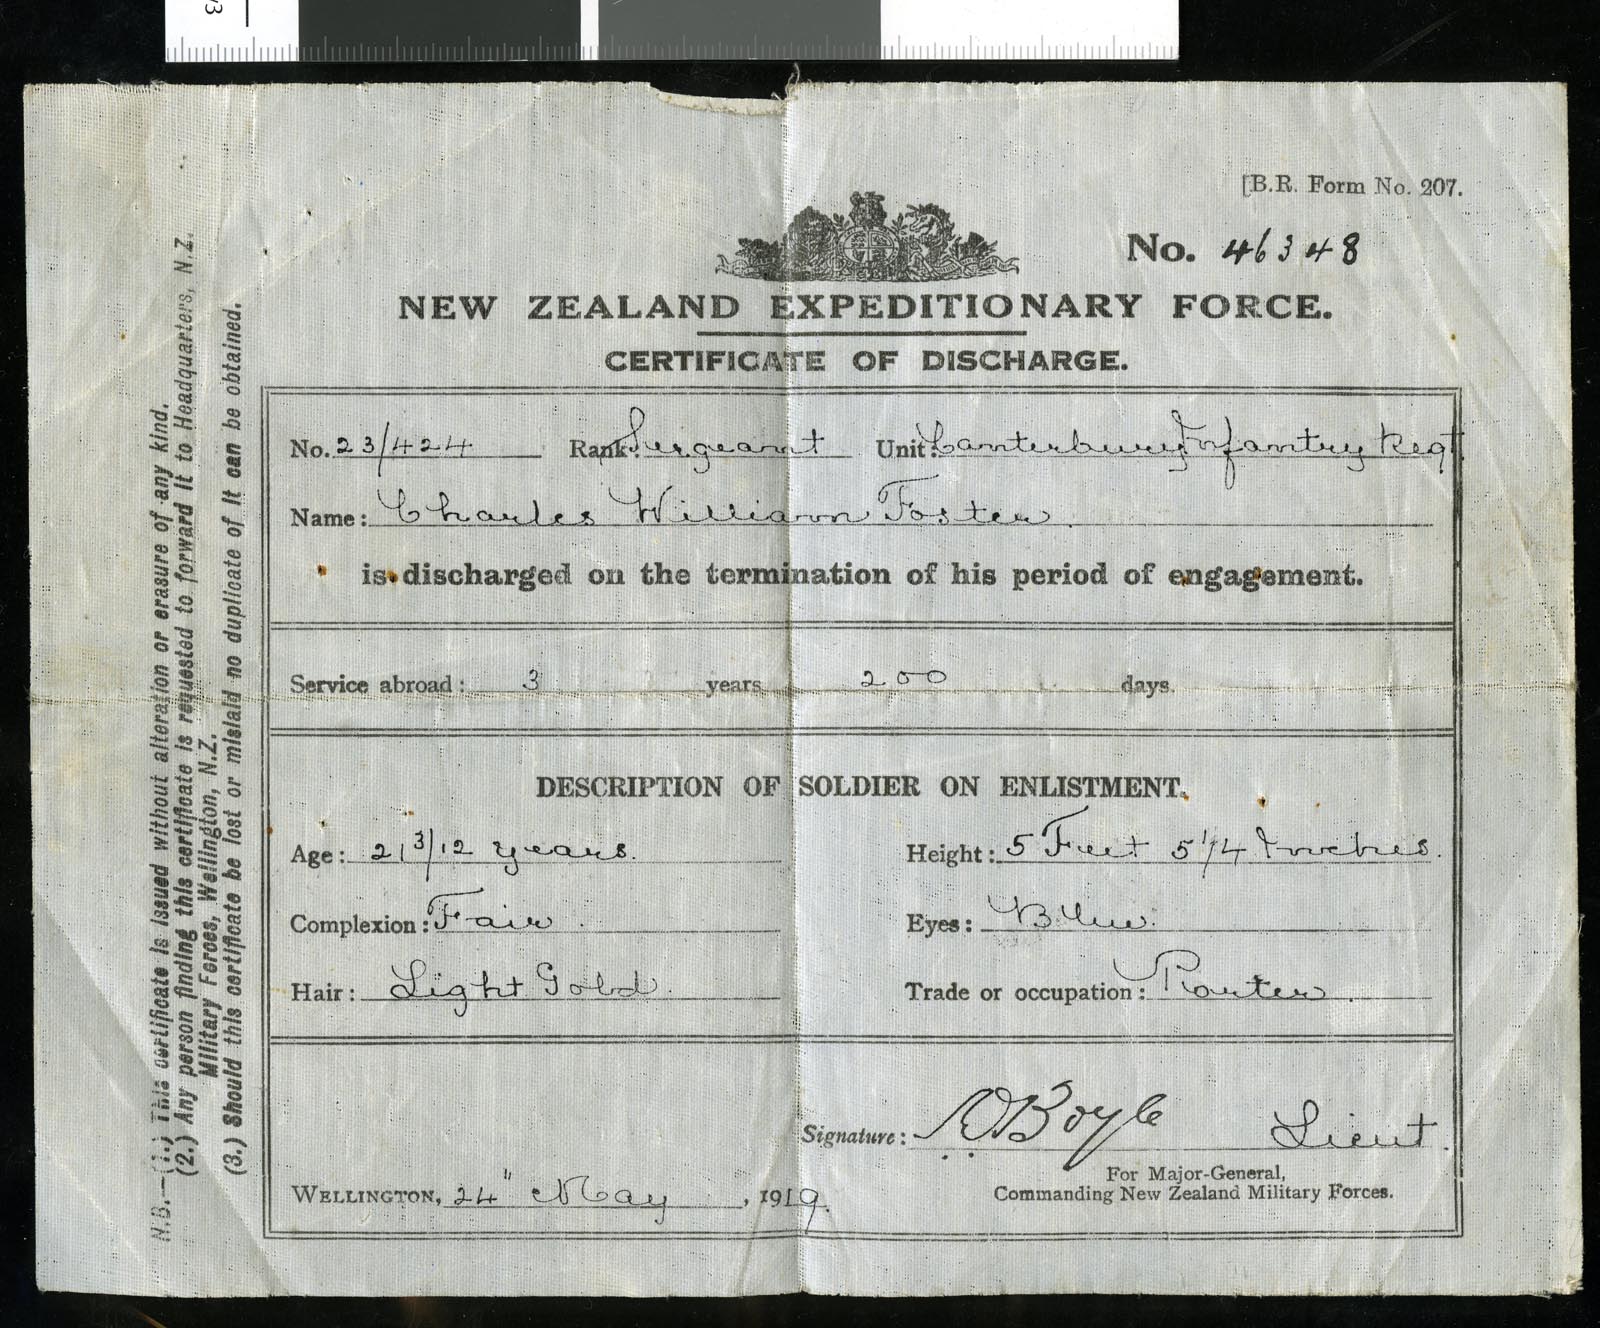 [B.R. Form No. 207.
No. 46348
NEW ZEALAND EXPEDITIONARY FORCE.
CERTIFICATE OF DISCHARGE.
No. 23/424 Rank: Sergeant Unit: Canterbury Infantry Regt.
Name: Charles William Foster.
is discharged on the termination of his period of engagement.
Service abroad: 3 years 200 days.
DESCRIPTION OF SOLDIER ON ENLISTMENT.
Age: 21 3/12 years. Height: 5 Feet 5 1/4 Inches.
Complexion: Fair. Eyes: Blue.
Hair: Light Gold. Trade or occupation: Porter.
Signature: Boyle Lieut.
For Major-General,
Commanding New Zealand Military Forces.
WELLINGTON, 24" May, 1919.
N.B.—(1.) This certificate is issued without alteration or erasure of any kind.
(2.) Any person finding this certificate is requested to forward it to Headquarters, N.Z.
Military Forces, Wellington, N.Z.
(3.) Should this certificate be lost or mislaid no duplicate of it can be obtained.